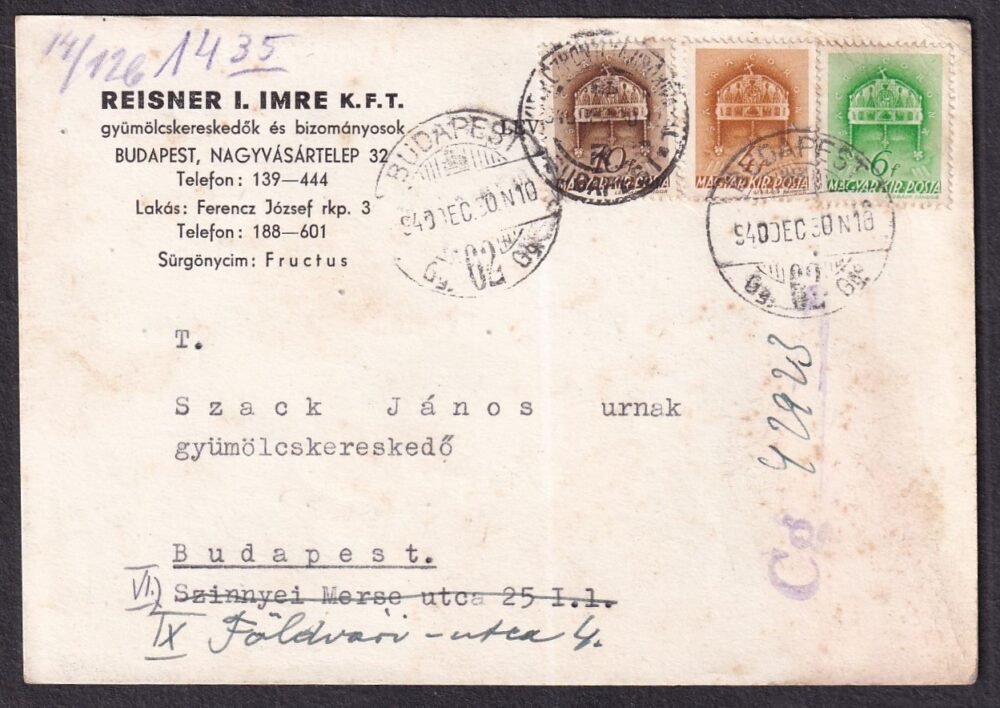 14/126 1435
REISNER I. IMRE K.F.T.
gyümölcskereskedők és bizományosok
BUDAPEST, NAGYVÁSÁRTELEP 32
Telefon: 139—444
Lakás: Ferencz József rkp. 3
Telefon: 188—601
Sürgönycim: Fructus
LEV
10f
MAGYAR KIR. POSTA
4f
MAGYAR KIR. POSTA
6f
MAGYAR KIR. POSTA
BUDAPEST
940 DEC 30 N 10
BUDAPEST
940 DEC 30 N 18
T.
Szack János urnak
gyümölcskereskedő
Budapest.
VI.) Szinnyei Merse utca 25 I.1.
IX Földvári-utca 4.
Cg